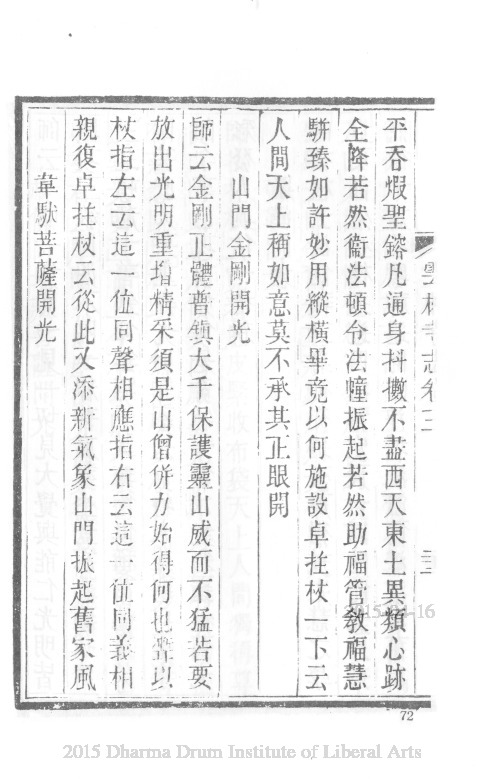 平吞煅聖鎔凡通身抖擻不盡西天東土異類心跡
全降若然衞法頓令法幢振起若然助福管敎福慧
駢臻如許妙用縱橫畢竟以何施設卓拄杖一下云
人間天上稱如意莫不承其正眼開
山門金剛開光
師云金剛正體普鎮大千保護靈山威而不猛若要
放出光明重增精采須是山僧併力始得何也聻以
杖指左云這一位同聲相應指右云這一位同義相
親復卓拄杖云從此又添新氣象山門振起舊家風
韋馱菩薩開光
雲林寺志卷三
72
2015 Dharma Drum Institute of Liberal Arts